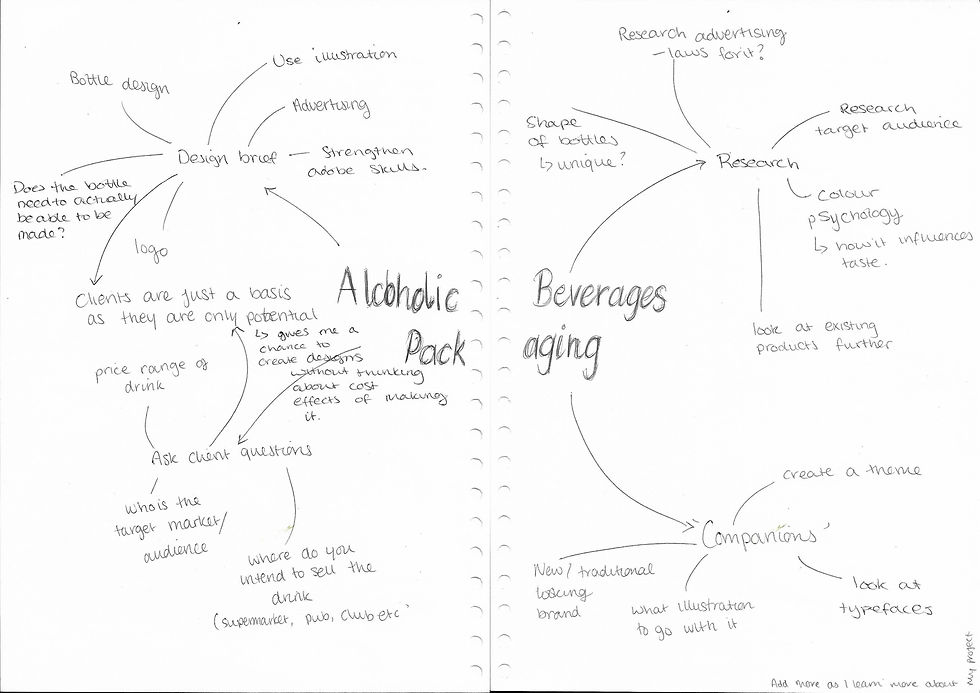 Alcoholic Beverages
Packaging
Design brief
Bottle design
Use illustration
Advertising
Strengthen
adobe skills.
Does the bottle
need to actually
be able to be
made?
logo
Clients are just a basis
as they are only potential
↳ gives me a
chance to
create designs
without thinking
about cost
effects of making
it.
Ask client questions
price range of
drink
who is the
target market/
audience
where do you
intend to sell the
drink
(supermarket, pub, club etc
Research
Research advertising
– laws for it?
Shape
of bottles
↳ unique?
Research
target audience
Colour
psychology
↳ how it influences
taste.
look at existing
products further
Companions
create a theme
New/traditional
looking
brand
what illustration
to go with it
look at
typefaces
Add more as I learn more about
my project